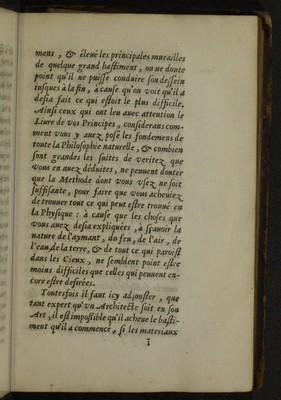 mens, & éleué les principales murailles
de quelque grand bastiment, on ne doute
point qu'il ne puisse conduire son dessein
iusques à la fin, à cause qu'on voit qu'il a
desia fait ce qui estoit le plus difficile.
Ainsi ceux qui ont leu auec attention le
Liure de vos Principes, considerans com-
ment vous y auez posé les fondemens de
toute la Philosophie naturelle, & combien
sont grandes les suites de veritez que
vous en auez déduites, ne peuuent douter
que la Methode dont vous vsez ne soit
suffisante, pour faire que vous acheuiez
de trouuer tout ce qui peut estre trouué en
la Physique: à cause que les choses que
vous auez desia expliquées, à sçauoir la
nature de l'aymant, du feu, de l'air, de
l'eau, de la terre, & de tout ce qui paroist
dans les Cieux, ne semblent point estre
moins difficiles que celles qui peuuent en-
core estre desirées.
Toutesfois il faut icy adjouster, que
tant expert qu'vn Architecte soit en son
Art, il est impossible qu'il acheue le basti-
ment qu'il a commencé, si les materiaux
ĩ